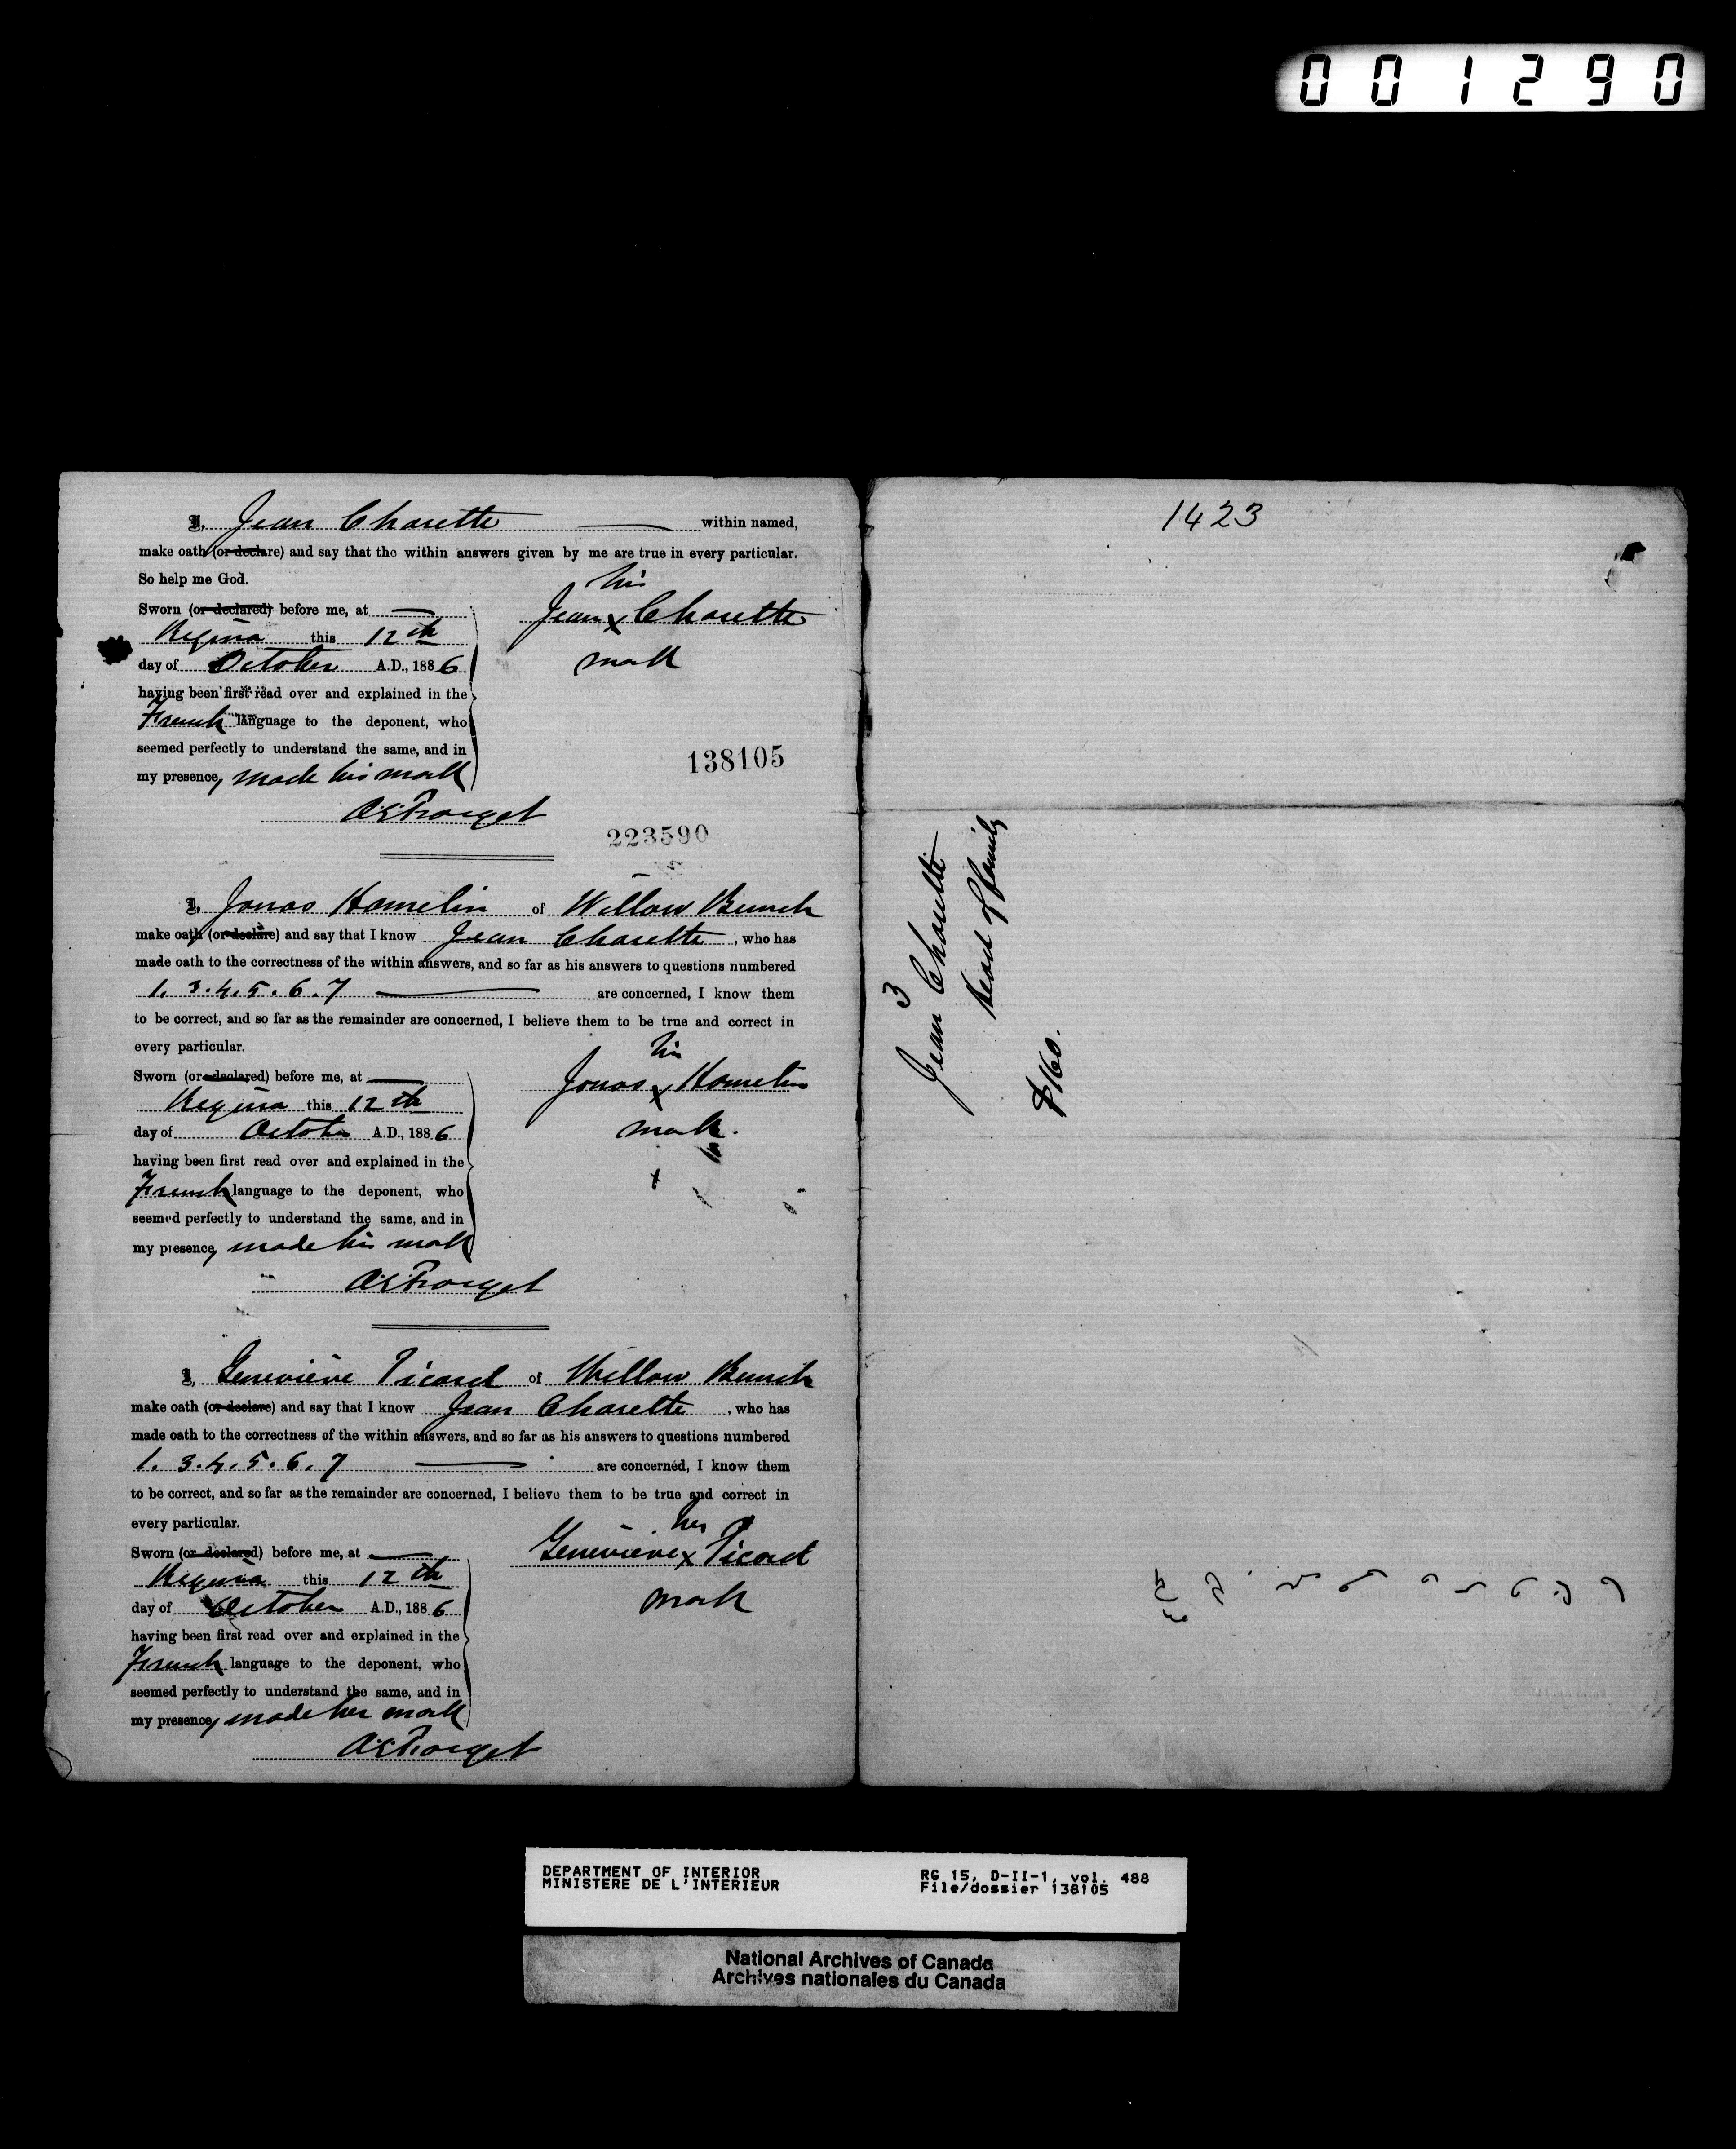 001290
I, Jean Charette within named,
make oath (or declare) and say that the within answers given by me are true in every particular.
So help me God.
Sworn (or declared) before me, at
Regina this 12th
day of October A.D., 1886
having been first read over and explained in the
French language to the deponent, who
seemed perfectly to understand the same, and in
my presence, made his mark
his
Jean x Charette
mark
138105
AEForget
223590
I, Jonas Hamelin of Willow Bunch
make oath (or declare) and say that I know Jean Charette, who has
made oath to the correctness of the within answers, and so far as his answers to questions numbered
1. 3. 4. 5. 6. 7 are concerned, I know them
to be correct, and so far as the remainder are concerned, I believe them to be true and correct in
every particular.
Sworn (or declared) before me, at
Regina this 12th
day of October A.D., 1886
having been first read over and explained in the
French language to the deponent, who
seemed perfectly to understand the same, and in
my presence, made his mark
his
Jonas x Hamelin
mark.
AEForget
I, Geneviève Picard of Willow Bunch
make oath (or declare) and say that I know Jean Charette, who has
made oath to the correctness of the within answers, and so far as his answers to questions numbered
1. 3. 4. 5. 6. 7 are concerned, I know them
to be correct, and so far as the remainder are concerned, I believe them to be true and correct in
every particular.
Sworn (or declared) before me, at
Regina this 12th
day of October A.D., 1886
having been first read over and explained in the
French language to the deponent, who
seemed perfectly to understand the same, and in
my presence, made her mark
her
Geneviève x Picard
mark
AEForget
1423
3
Jean Charette
head of family
$160.
DEPARTMENT OF INTERIOR
MINISTERE DE L'INTERIEUR
RG 15, D-II-1, vol. 488
File/dossier 138105
National Archives of Canada
Archives nationales du Canada